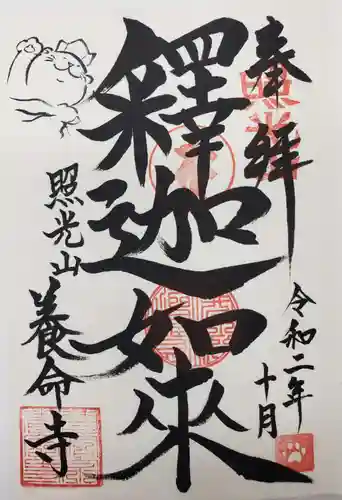 奉拝
令和二年
十月
釋迦如來
照光山
養命寺